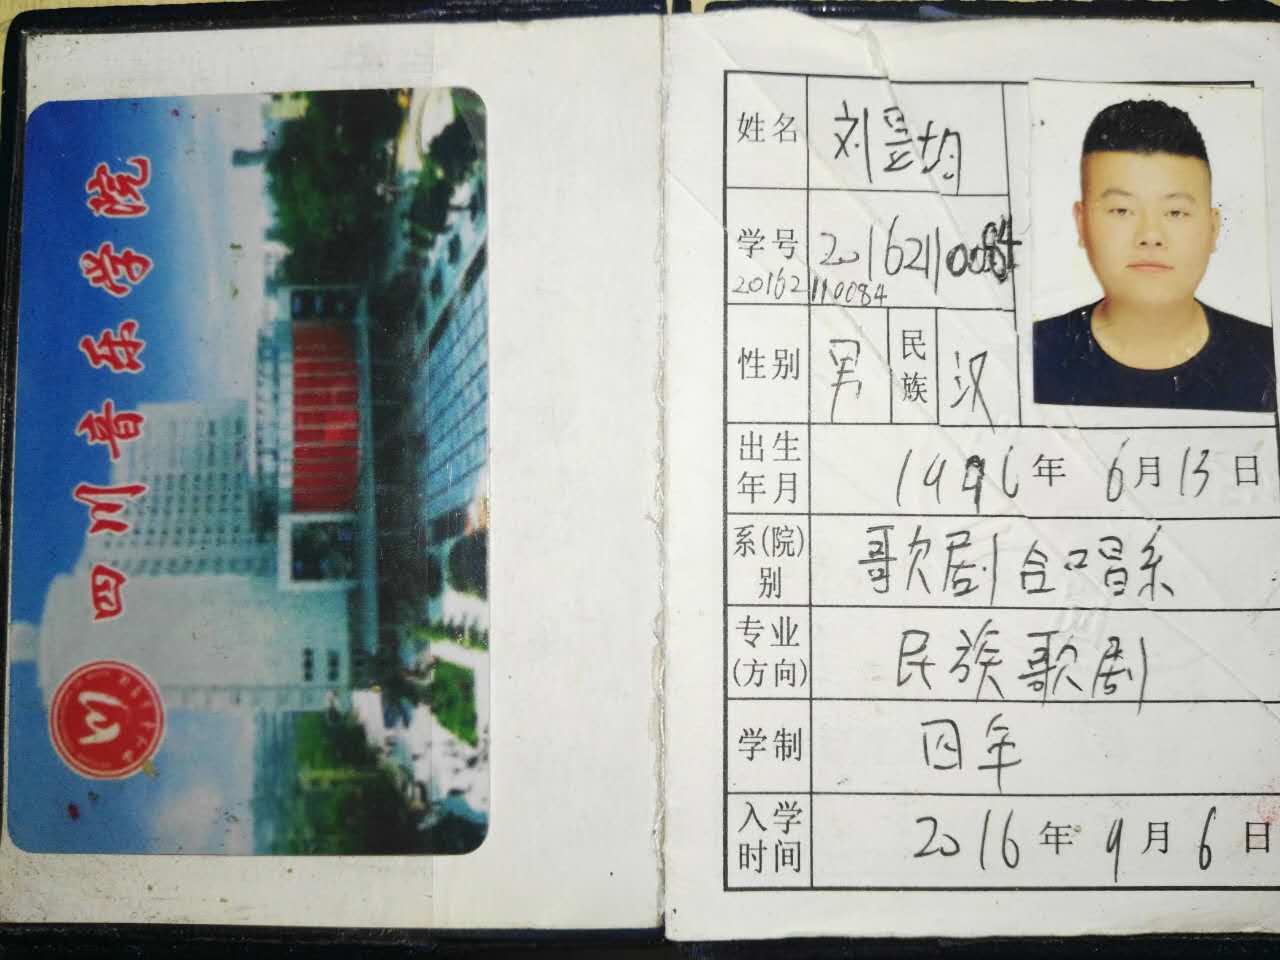 四川音乐学院
姓名 刘昱均
学号 20162110084
20162110084
性别 男 民族 汉
出生年月 1996年6月13日
系(院)别 歌剧合唱系
专业(方向) 民族歌剧
学制 四年
入学时间 2016年9月6日